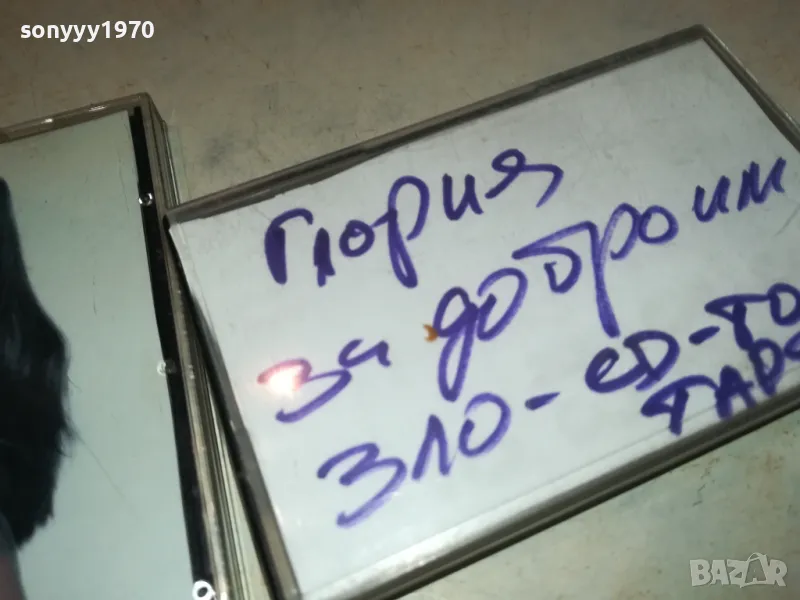 sonyyy1970
Глория
за доброим
зло - CD - TO
BAZAR